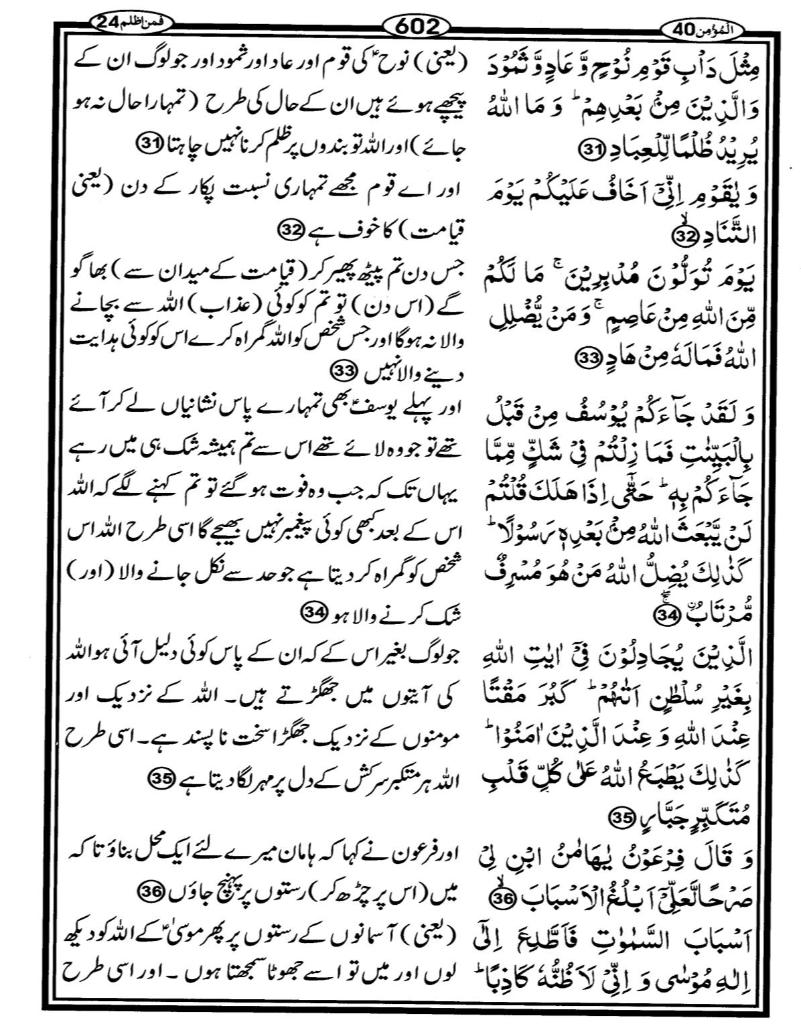 المؤمن 40
602
فمن اظلم 24
مِثْلَ دَاْبِ قَوْمِ نُوْحٍ وَّعَادٍ وَّثَمُوْدَ
وَالَّذِيْنَ مِنْۢ بَعْدِهِمْ ؕ وَمَا اللّٰهُ
يُرِيْدُ ظُلْمًا لِّلْعِبَادِ 31
وَيٰقَوْمِ اِنِّيْۤ اَخَافُ عَلَيْكُمْ يَوْمَ
التَّنَادِ ۙ 32
يَوْمَ تُوَلُّوْنَ مُدْبِرِيْنَ ۚ مَا لَكُمْ
مِّنَ اللّٰهِ مِنْ عَاصِمٍ ۚ وَمَنْ يُّضْلِلِ
اللّٰهُ فَمَا لَهٗ مِنْ هَادٍ 33
وَلَقَدْ جَآءَكُمْ يُوْسُفُ مِنْ قَبْلُ
بِالْبَيِّنٰتِ فَمَا زِلْتُمْ فِيْ شَكٍّ مِّمَّا
جَآءَكُمْ بِهٖ ؕ حَتّٰۤى اِذَا هَلَكَ قُلْتُمْ
لَنْ يَّبْعَثَ اللّٰهُ مِنْۢ بَعْدِهٖ رَسُوْلًا ؕ
كَذٰلِكَ يُضِلُّ اللّٰهُ مَنْ هُوَ مُسْرِفٌ
مُّرْتَابٌ ۚۖ 34
الَّذِيْنَ يُجَادِلُوْنَ فِيْۤ اٰيٰتِ اللّٰهِ
بِغَيْرِ سُلْطٰنٍ اَتٰهُمْ ؕ كَبُرَ مَقْتًا
عِنْدَ اللّٰهِ وَعِنْدَ الَّذِيْنَ اٰمَنُوْا ؕ
كَذٰلِكَ يَطْبَعُ اللّٰهُ عَلٰى كُلِّ قَلْبِ
مُتَكَبِّرٍ جَبَّارٍ 35
وَقَالَ فِرْعَوْنُ يٰهَامٰنُ ابْنِ لِيْ
صَرْحًا لَّعَلِّيْۤ اَبْلُغُ الْاَسْبَابَ ۙ 36
اَسْبَابَ السَّمٰوٰتِ فَاَطَّلِعَ اِلٰۤى
اِلٰهِ مُوْسٰى وَاِنِّيْ لَاَظُنُّهٗ كَاذِبًا ؕ
(یعنی) نوحؑ کی قوم اور عاد اور ثمود اور جو لوگ ان کے
پیچھے ہوئے ہیں ان کے حال کی طرح (تمہارا حال نہ ہو
جائے) اور اللہ تو بندوں پر ظلم کرنا نہیں چاہتا 31
اور اے قوم مجھے تمہاری نسبت پکار کے دن (یعنی
قیامت) کا خوف ہے 32
جس دن تم پیٹھ پھیر کر (قیامت کے میدان سے) بھاگو
گے (اس دن) تو تم کو کوئی (عذاب) اللہ سے بچانے
والا نہ ہوگا اور جس شخص کو اللہ گمراہ کرے اس کو کوئی ہدایت
دینے والا نہیں 33
اور پہلے یوسفؑ بھی تمہارے پاس نشانیاں لے کر آئے
تھے تو جو وہ لائے تھے اس سے تم ہمیشہ شک ہی میں رہے
یہاں تک کہ جب وہ فوت ہو گئے تو تم کہنے لگے کہ اللہ
اس کے بعد کبھی کوئی پیغمبر نہیں بھیجے گا اسی طرح اللہ اس
شخص کو گمراہ کر دیتا ہے جو حد سے نکل جانے والا (اور)
شک کرنے والا ہو 34
جو لوگ بغیر اس کے کہ ان کے پاس کوئی دلیل آئی ہو اللہ
کی آیتوں میں جھگڑتے ہیں۔ اللہ کے نزدیک اور
مومنوں کے نزدیک جھگڑا سخت نا پسند ہے۔ اسی طرح
اللہ ہر متکبر سرکش کے دل پر مہر لگا دیتا ہے 35
اور فرعون نے کہا کہ ہامان میرے لئے ایک محل بناؤ تا کہ
میں (اس پر چڑھ کر) رستوں پر پہنچ جاؤں 36
(یعنی) آسمانوں کے رستوں پر پھر موسیٰؑ کے اللہ کو دیکھ
لوں اور میں تو اسے جھوٹا سمجھتا ہوں ۔ اور اسی طرح